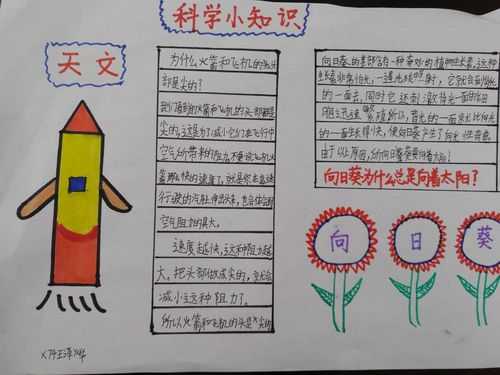 科学小知识
天文
为什么火箭和飞机的头
都是尖的?
我们看到的火箭和飞机的头都是
尖的,这是为了减小它们在飞行中
空气所带来的阻力,不要说飞机火
箭那么快的速度了,就是你在高速
行驶的汽车伸出头来,也会体会到
空气阻力的具大。
速度越快,这种阻力越
大,把头部做成尖的,就会
减小这种阻力了。
所以火箭和飞机的头是尖的
向日葵的茎部含有一种奇妙的植物生长素,这种
生长素非常怕光,一遇光线照射,它就会到背光
的一面去,同时它还刺激背光一面的细
胞迅速繁殖所以,背光的一面就比向光
的一面生长得快,使向日葵产生了向光性弯曲
由于以上原因,所向日葵要向着太阳!
向日葵为什么总是向着太阳?
向 日 葵